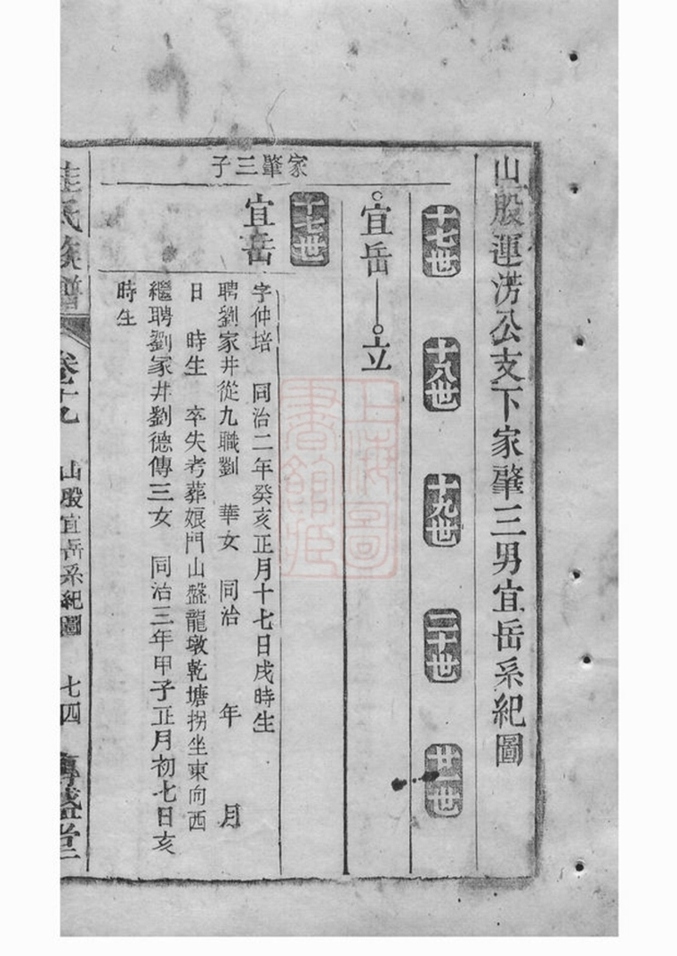 山股運滂公支下家肇三男宜岳系紀圖
十七世 十八世 十九世 二十世 廿一世
宜岳 立
家肇三子
十七世
宜岳
字仲培 同治二年癸亥正月十七日戌時生
聘劉家井從九職劉 華女 同治 年 月
日 時生 卒失考葬娘門山盤龍墩乾塘拐坐東向西
繼聘劉家井劉德傳三女 同治三年甲子正月初七日亥
時生
氏族譜 卷十九 山股宜岳系紀圖 七四
上海圖書館藏